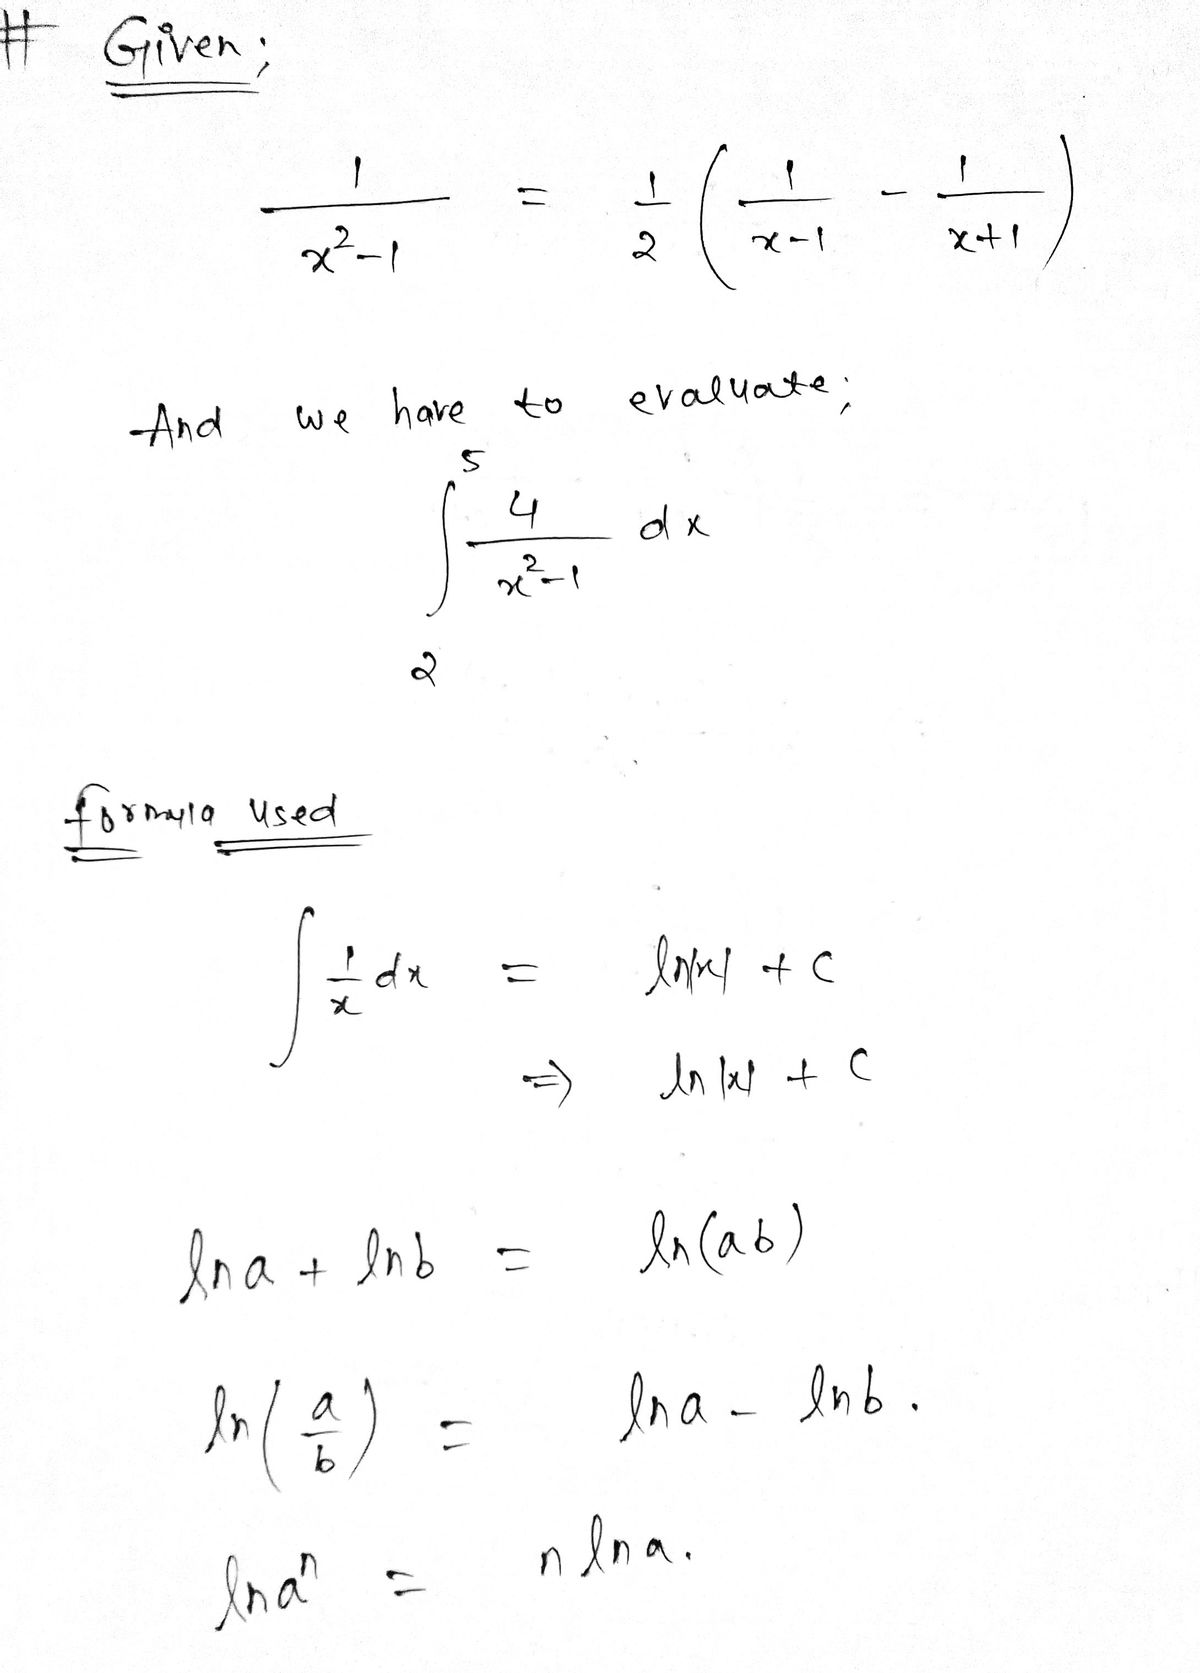 # Given;
1/(x²-1) = 1/2 (1/(x-1) - 1/(x+1))
And we have to evaluate;
∫₂⁵ 4/(x²-1) dx
formula used
∫ 1/x dx = ln|x| + C
⇒ ln|x| + C
ln a + ln b = ln(ab)
ln(a/b) = ln a - ln b.
ln aⁿ = n ln a.